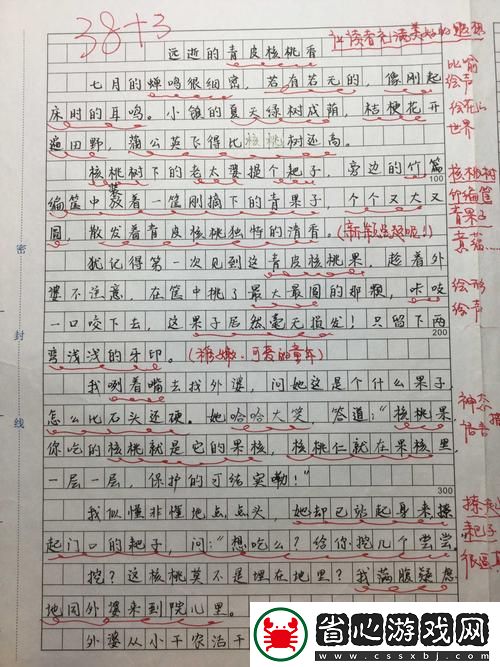 38+3
让读者充满美好的遐想
远逝的青皮核桃香
七月的蝉鸣很细密，若有若无的，像刚起
床时的耳鸣。小镇的夏天绿树成荫，桔梗花开
遍田野，蒲公英飞得比核桃树还高。
比喻
绘声
世界
核桃树下的老太婆摸个耙子，旁边的竹篇
100
编筐中装着一筐刚摘下的青果子，个个又大又
圆，散发着青皮核桃独特的清香。
核桃树
竹编筐
青果子
犹记得第一次见到这青皮核桃果，趁着外
婆不注意，在筐中挑了最大最圆的那颗，咔吱
一口咬下去，这果子居然毫无损发！只留下两
200
弯浅浅的牙印。（稚嫩、可爱的童年）
绘形
绘声
我咧着嘴去找外婆，问她这是个什么果子，
怎么比石头还硬。她哈哈大笑，答道：“核桃果，
你吃的核桃就是它的果核，核桃仁就在果核里，
一层一层，保护的可结实嘞！”
300
神态
我似懂非懂地点点头，她却已站起身来操
起门口的耙子，问：“想吃么？给你挖几个尝尝。
耙子
挖？这核桃莫不是埋在地里？我满腹疑惑
地同外婆来到院儿里。
外婆从小干农活干
密
封
线
省心游戏网
www.cssxbj.com